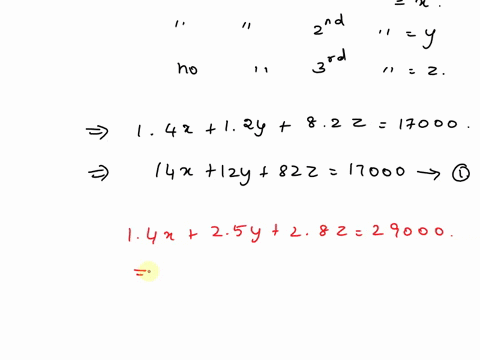 = x.
" " 2nd " = y
no " 3rd " = z.
⇒ 1.4x + 1.2y + 8.2z = 17000.
⇒ 14x + 12y + 82z = 17000 → ①
1.4x + 2.5y + 2.8z = 29000.
=